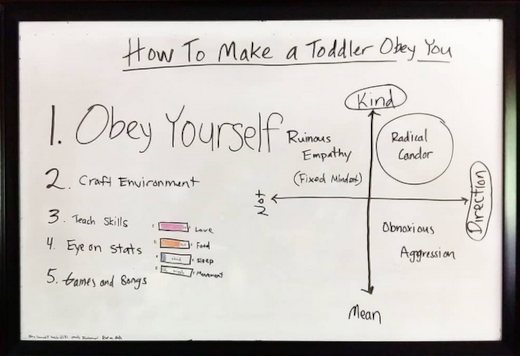 How To Make a Toddler Obey You
1. Obey Yourself
2. Craft Environment
3. Teach Skills
4. Eye on Stats
5. Games and Songs
Love
Food
Sleep
Movement
Kind
Ruinous
Empathy
(Fixed Mindset)
Radical
Candor
Not
Direction
Obnoxious
Aggression
Mean